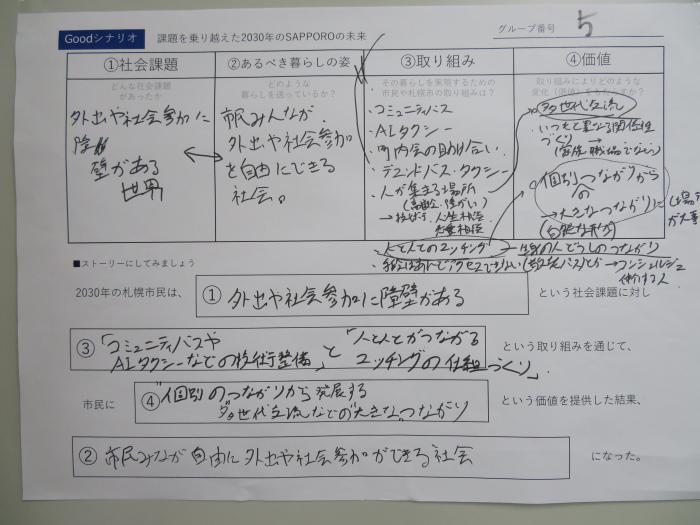 Goodシナリオ 課題を乗り越えた2030年のSAPPOROの未来
グループ番号 5
①社会課題
どんな社会課題
があったか
外出や社会参加に
障壁がある
世界
②あるべき暮らしの姿
どのような
暮らしを送っているか?
市民みんなが
外出や社会参加
を自由にできる
社会。
③取り組み
その暮らしを実現するための
市民や札幌市の取り組みは?
・コミュニティバス
・AIタクシー
・町内会の助け合い
・デマンドバス・タクシー
・人が集まる場所
(高齢者・障がい)
人生相談
・人と人とのマッチング
④価値
取り組みによりどのような
変化(価値)をもたらすか?
多世代交流
・いつもと異なる関係性
づくり
個別のつながりから
→大きなつながりに
コンシェルジュ
■ストーリーにしてみましょう
2030年の札幌市民は、
① 外出や社会参加に障壁がある
という社会課題に対し
③ 「コミュニティバスや
AIタクシーなどの技術整備」と「人と人とがつながる
マッチングの仕組づくり」
という取り組みを通じて、
市民に
④ "個別のつながりから発展する
多世代交流などの"大きな"つながり
という価値を提供した結果、
② 市民みなが自由に外出や社会参加ができる社会
になった。